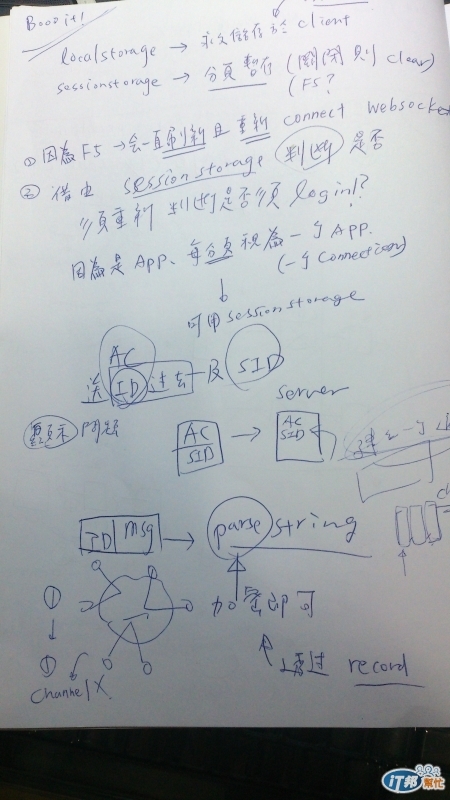 Booo it!
localstorage → 永久儲存於 client
sessionstorage → 分頁暫存 (關閉則 clear)
(F5?
① 因為 F5 → 会一直刷新且重新 connect websocket
② 藉由 session storage 判斷是否
須重新判斷是否須 login!?
因為是 App、每分頁視為一个 App.
(一个 Connection)
↓
可用 sessionstorage
送 AC ID 过去 及 SID
顯示 問題
AC
SID
→
server
AC
SID
建立一个
ID msg → parse string
① ↓ ①
加密即可
Channel X
透过 record
iT邦幫忙